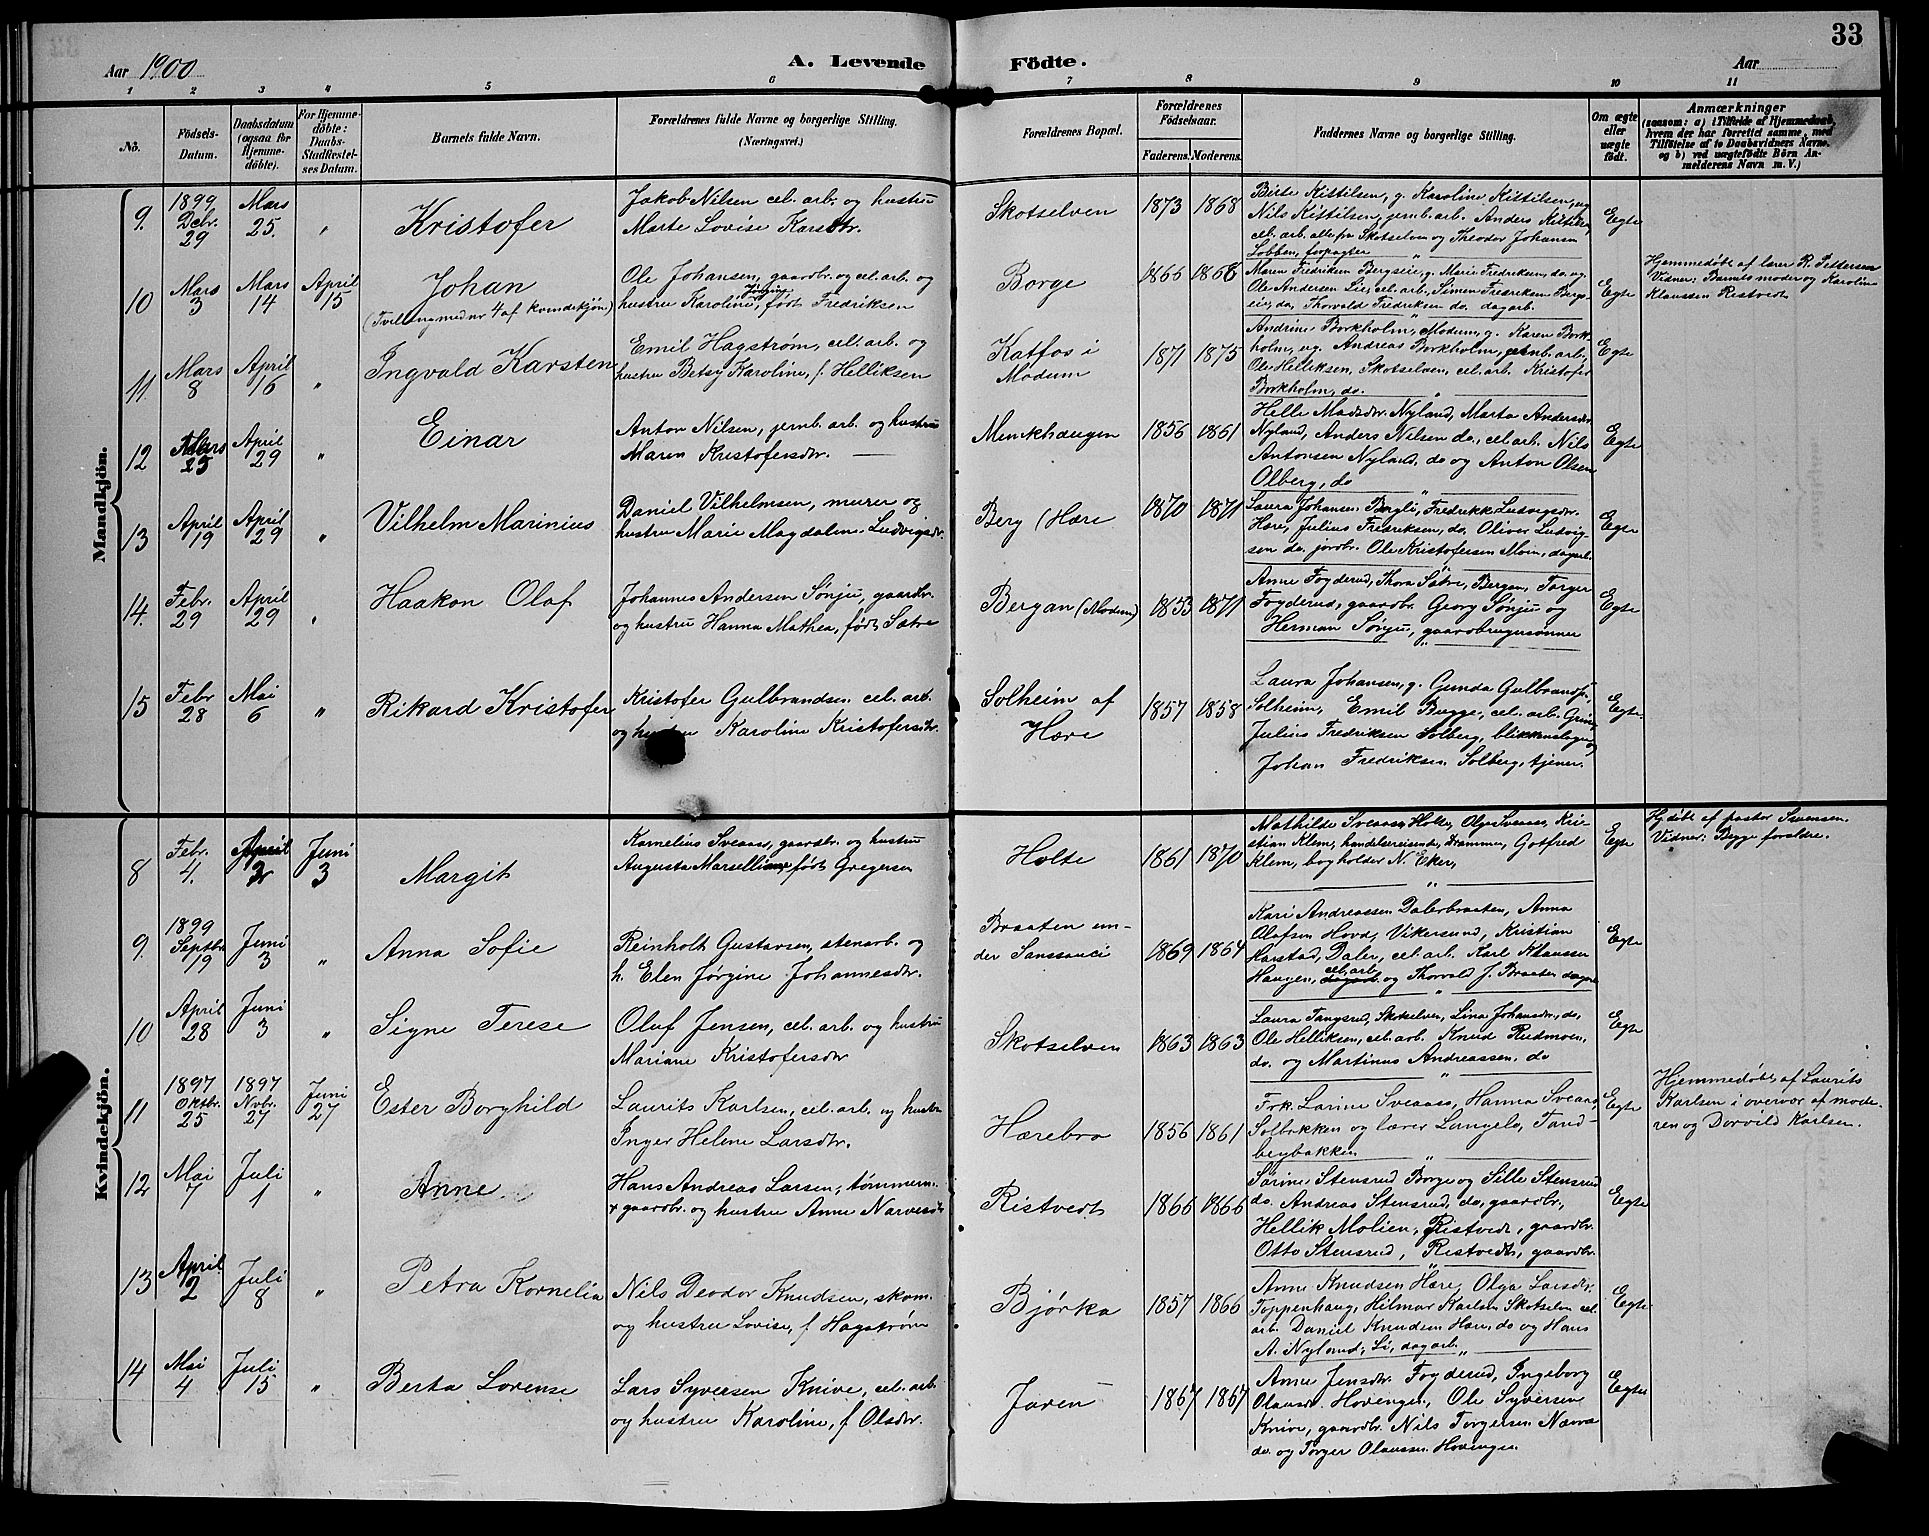 33
Aar 1900
A. Levende
Födte.
Aar
1 2 3 4 5 6 7 8 9 10 11
No.
Födsels-
Datum.
Daabsdatum
(ogsaa for
Hjemme-
döbte).
For Hjemme-
döbte:
Daabs-
Stadfæstel-
ses Datum.
Barnets fulde Navn.
Forældrenes fulde Navne og borgerlige Stilling.
(Næringsvei.)
Forældrenes Bopæl.
Forældrenes
Födselsaar.
Faderens. Moderens.
Faddernes Navne og borgerlige Stilling.
Om ægte
eller
uægte
født.
Anmærkninger
(saasom: a) i Tilfælde af Hjemmedaab,
hvem der har forrettet samme, med
Tilföielse af to Daabsvidners Navne.
og b) ved uægtefödte Börn An-
melderens Navn m. V.)
Mandkjön.
9. 1899 Decbr. 29 Mars 25. "
Kristofer
Jakob Nilsen cel. arb. og hustru
Marte Lovise Karsdtr.
Skotselven 1873 1868
Birte Kittilsen, g. Karoline Kittilsen, ug
Nils Kittilsen, jernb. arb. Anders Kittilsen
cel. arb. alle fra Skotselven og Theodor Johansen
Lobben, forpagter
Egte
10 Mars 3 Mars 14 April 15
Johan
(Tvilling med nr 4 af kvindekjön)
Ole Johansen, gaardbr. og cel. arb. og
hustru Karoline Jörgine, født Fredriksen
Borge 1866 1866
Maren Fredriksen Bergseie, g. Marie Fredriksen, do. ug.
Ole Andersen Lie, cel. arb., Simen Fredriksen Berg-
eie, do, Thorvald Fredriksen do. dagarb.
Egte
Hjemmedöbt af lærer R. Pettersen
Vidner: Barnets moder og Karoline
Klaussen Ristvedt
11 Mars 8 April 16 "
Ingvald Karsten
Emil Hagström, cel. arb. og
hustru Betsy Karoline, f. Helliksen
Katfos i
Modum
1871 1875
Andrine Borkholm, Modum, g. Karen Bork-
holm, ug. Andreas Borkholm, jernb. arb.,
Ole Helliksen, Skotselven, cel. arb. Kristofer
Borkholm, do.
Egte
12 Mars 25 April 29 "
Einar
Anton Nilsen, jernb. arb. og hustru
Maren Kristofersdtr.
Munkhaugen 1856 1861
Helle Madsdtr. Nyland, Marta Andersdtr
Nyland, Anders Nilsen do., cel. arb. Nils
Antonsen Nyland, do og Anton Olsen
Olberg, do
Egte
13 April 19 April 29 "
Vilhelm Marinius
Daniel Vilhelmsen, murer og
hustru Marie Magdalene Ludvigsdtr.
Berg (Hære 1870 1871
Laura Johansen Bergli, Fredrikk Ludvigsdtr.
Hære, Julius Fredriksen, do. Oliver Ludvig-
sen do. jordbr. Ole Kristofersen Moen, dagarb.
Egte
14. Febr. 29 April 29 "
Haakon Olaf
Johannes Andersen Sönju, gaardbr.
og hustru Hanna Mathea, født Sætre
Bergan (Modum) 1853 1871
Anne Fogderud, Thora Sætre, Bergan, Torger
Fogderud, gaardbr. Georg Sönju og
Herman Sönju, gaardbrugersönner
Egte
15 Febr 28 Mai 6 "
Rikard Kristofer
Kristofer Gulbrandsen cel. arb.
og hustru Karoline Kristofersdtr.
Solheim af
Hære
1857 1858
Laura Johansen, g. Gunda Gulbrands.
Solheim, Emil Bugge, cel. arb.
Julius Fredriksen Solberg, blikkenslager og
Johan Fredriksen Solberg, tjener.
Egte.
Kvindekjön.
8 Febr. 4. April 2 Juni 3
Margit
Kornelius Sveaas, gaardbr. og hustru
Augusta Marselline født Gregersen
Holte 1861 1870
Mathilde Sveaas, Holte, Olga Sveaas, Kri-
stian Klem, handelsreisende, Drammen, Gotfred
Klem, bogholder N. Eker,
Egte
Hjdöbt af pastor Svensen.
Vidner: Begge forældre.
9. 1899 Septbr 19 Juni 3 "
Anna Sofie
Reinholt Gustavsen, stenarb. og
h. Elen Jörgine Johannesdtr.
Braaten un-
der Sanssouci
1869 1864
Kari Andreassen Dalerbraaten, Anna
Olafsen Hovd, Vikersund, Kristian
Harstad, Daler, cel. arb. Karl Klaussen
Haugen, cel. arb. og Thorvald J. Braaten dagar
Egte
10 April 28 Juni 3 "
Signe Terese
Oluf Jensen, cel. arb. og hustru
Mariane Kristofersdtr
Skotselven 1863 1863
Laura Tangsrud, Skotselven, Lina Johansdtr, do,
Ole Helliksen, cel. arb. Knud Rudmoen,
do. og Martinus Andreassen, do
Egte
11 1897 Oktbr. 25 1897 Nvbr. 27 Juni 27
Ester Borghild
Laurits Karlsen, cel. arb. og hustru
Inger Helene Larsdtr.
Hærebro 1856 1861
Frk. Larine Sveaas, Hanna Sveaas,
Solbakken og lærer Langelo, Tand-
bergbakken
Egte
Hjemmedöbt af Laurits
Karlsen i overvær af mode-
ren og Dorvild Karlsen.
12 Mai 7 Juli 1 "
Anne
Hans Andreas Larsen, tömmerm.
+ gaardbr. og hustru Anne Narvesdtr
Ristvedt 1866 1866
Sörine Stensrud Borge og Sille Stensrud
do. Andreas Stensrud, do, gaardbr.,
Hellik Molien, Ristvedt, gaardbr.
Otto Stensrud, Ristvedt, gaardbr.
Egte
13 April 2 Juli 8 "
Petra Kornelia
Nils Deodor Knudsen, skom.
og hustru Lovise, f Hagström
Bjørka 1857 1866
Anne Knudsen Hære, Olga Larsdtr.
Toppenhaug, Hilmar Karlsen Skotselven cel.
arb. Daniel Knudsen Hære, do og Hans
A. Nyland, Li, dagarb.
Egte
14 Mai 4 Juli 15 "
Berta Lovense
Lars Syversen Knive, cel. arb.
og hustru Karoline, f Olsdtr.
Jaren 1867 1867
Anne Jensdtr Fogderud, Ingeborg
Olausdtr. Hovengen, Ole Syversen
Knive, gaardbr. Nils Torgersen Nævra
do. og Torger Olaussen Hovengen
Egte